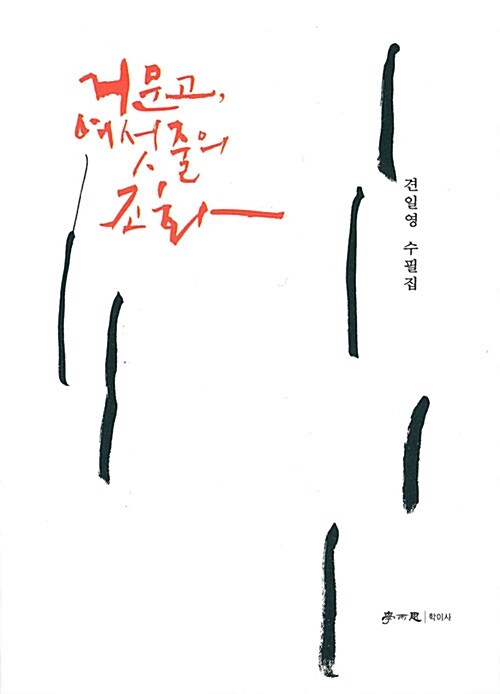 거문고,
여섯 줄의
조화
견일영 수필집
學而思 학이사